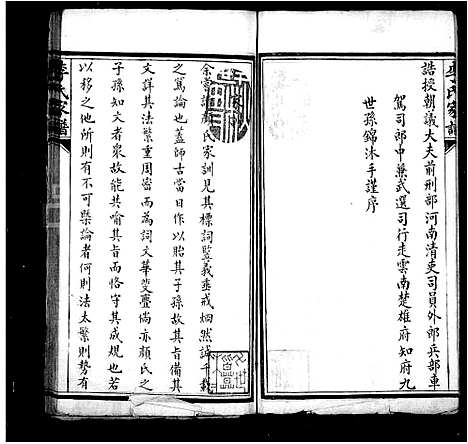 誥授朝議大夫前刑部河南清吏司員外郎兵部車
駕司郎中兼武選司行走雲南楚雄府知府九
世孫錦沐手謹序
李氏家譜
余嘗讀顏氏家訓見其標詞監義垂戒炳然誠千載
之篤論也蓋師古當日作以貽其子孫故其旨備其
文詳其法繁重周密而為詞文華斐亹倘亦顏氏之
子孫知文者衆故能共喻其旨而恪守其成規也若
以移之他所則有不可槩論者何則法太繁則勢有
李氏家譜